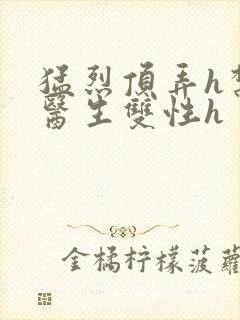 猛烈頂弄h
醫生雙性h
金橘柠檬菠蘿